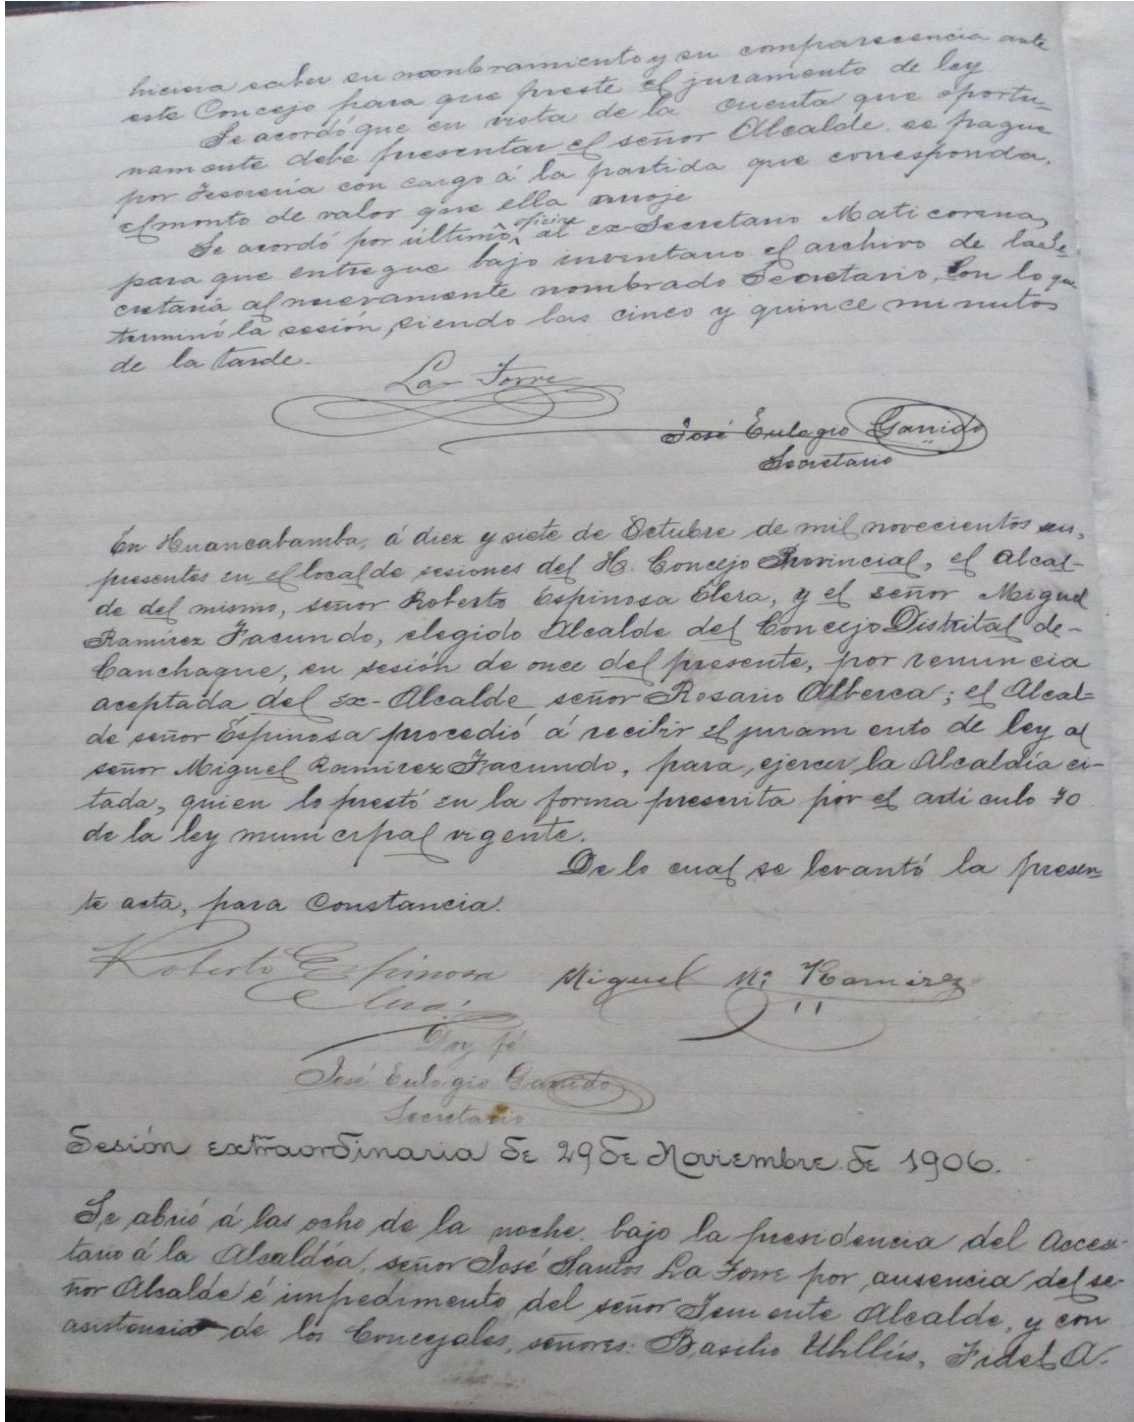 hiciera saber su nombramiento y su comparecencia ante
este Concejo para que preste el juramento de ley
Se acordó que en vista de la cuenta que oportu-
namente debe presentar el señor Alcalde se pague
por Tesorería con cargo á la partida que corresponda,
el monto de valor que ella arroje
Se acordó por último, oficiar al ex-Secretario Maticorena,
para que entregue bajo inventario el archivo de la Se-
cretaría al nuevamente nombrado Secretario, Con lo que
terminó la sesión, siendo las cinco y quince minutos
de la tarde.
La Torre
José Eulogio Garrido
Secretario
En Huancabamba, á diez y siete de Octubre de mil novecientos seis,
presentes en el local de sesiones del H. Concejo Provincial, el alcal-
de del mismo, señor Roberto Espinosa Elera, y el señor Miguel
Ramirez Facundo, elegido Alcalde del Concejo Distrital de-
Canchaque, en sesión de once del presente, por renuncia
aceptada del Ex-Alcalde señor Rosario Alberca; el Alcal-
de señor Espinosa procedió á recibir el juramento de ley al
señor Miguel Ramirez Facundo, para ejercer la Alcaldía ci-
tada, quien lo prestó en la forma prescrita por el artículo 70
de la ley municipal vigente.
De lo cual se levantó la presen-
te acta, para Constancia.
Roberto Espinosa
Elera
Miguel Mº Ramirez
Doy fé
José Eulogio Garrido
Secretario
Sesión extraordinaria de 29 de Noviembre de 1906.
Se abrió á las ocho de la noche bajo la presidencia del Acceci-
tario á la Alcaldía, señor José Santos La Torre por ausencia del se-
ñor Alcalde é impedimento del señor Teniente Alcalde, y con
asistencia de los Concejales, señores: Basilio Ubillús, Fidel A.